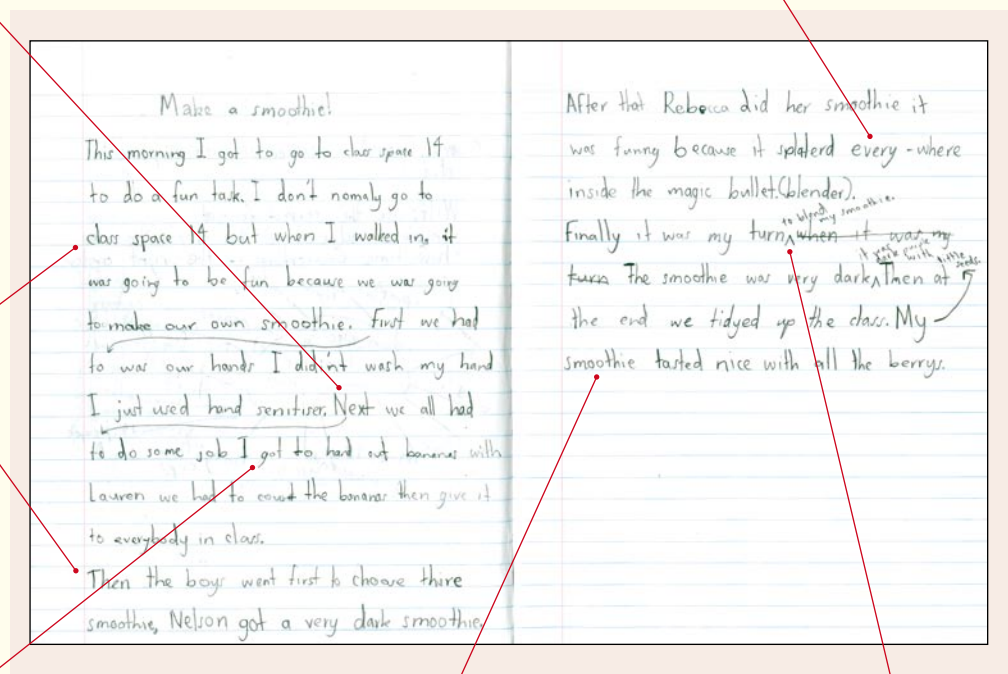 Make a smoothie!
This morning I got to go to class space 14
to do a fun task. I don't nomaly go to
class space 14 but when I walked in, it
was going to be fun because we was going
to make our own smoothie. First we had
to was our hands I didn't wash my hand
I just used hand senitiser. Next we all had
to do some job I got to hand out bananas with
Lauren we had to count the bananas then give it
to everybody in class.
Then the boys went first to choose thire
smoothie, Nelson got a very dark smoothie.
After that Rebecca did her smoothie it
was funny because it splaterd every-where
inside the magic bullet.(blender).
to blend my smoothie.
Finally it was my turn when it was my
it was dark purple with little seeds.
turn The smoothie was very dark Then at
the end we tidyed up the class. My
smoothie tasted nice with all the berrys.